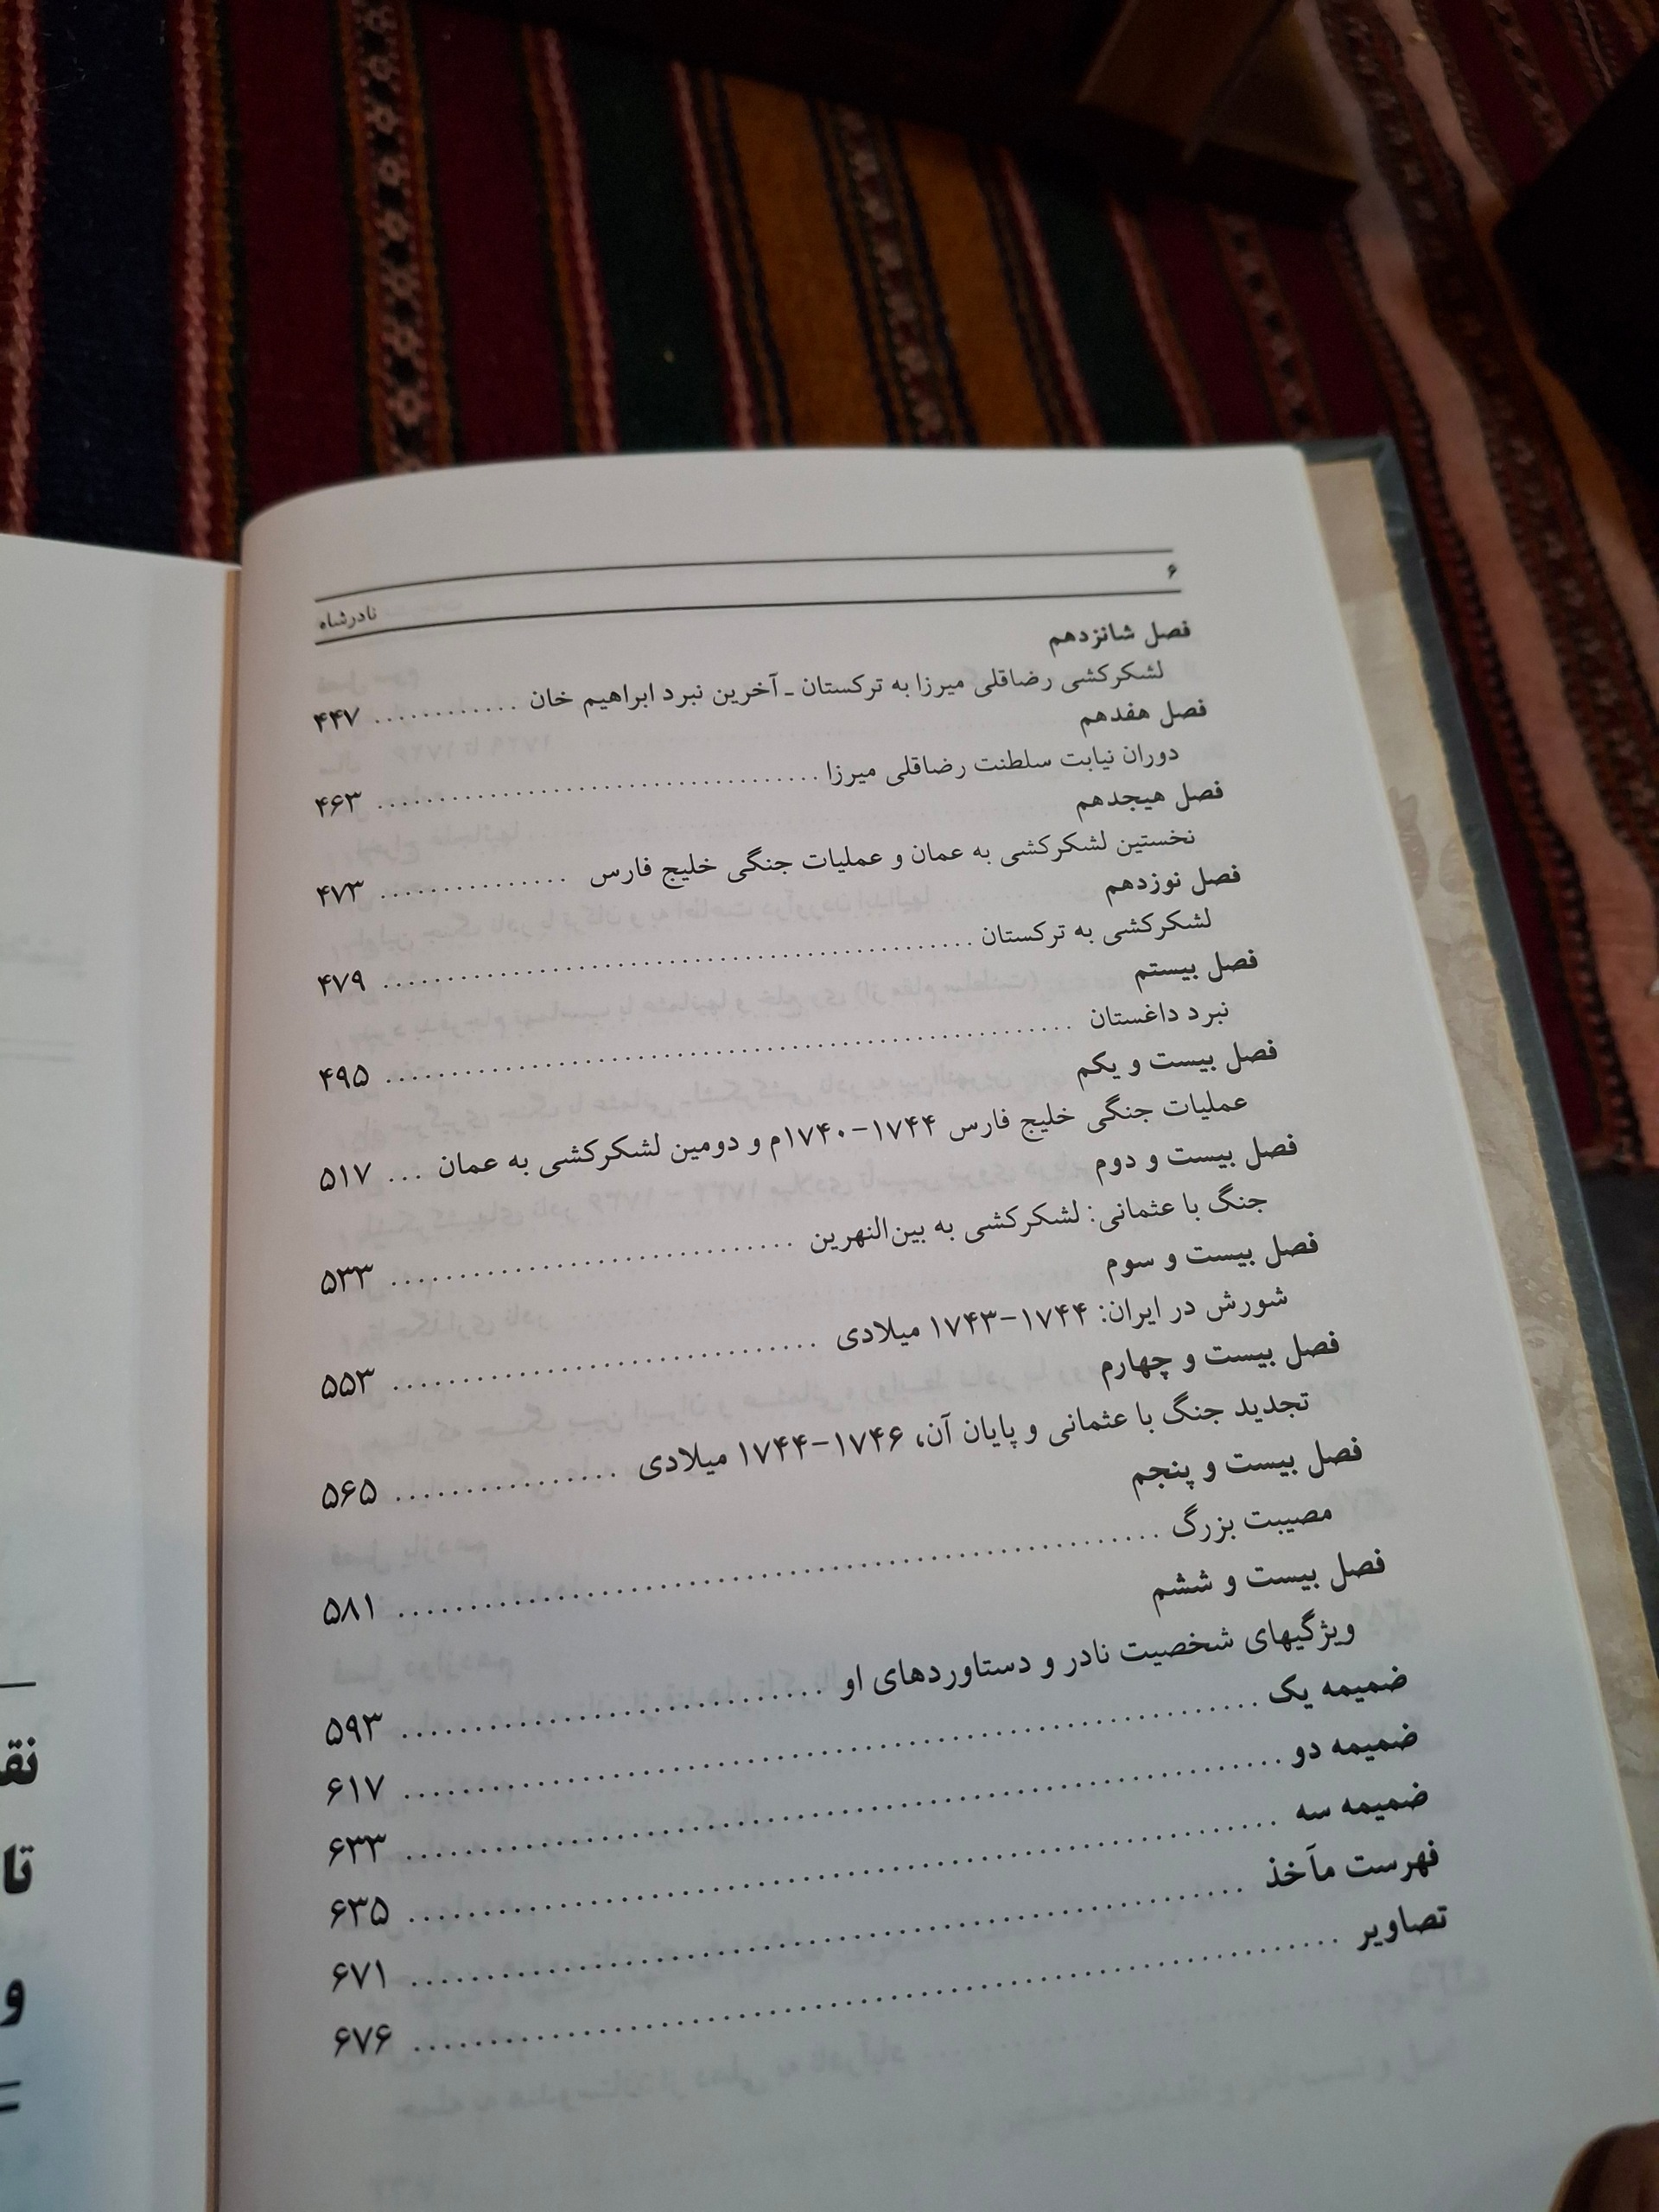 ۶
نادرشاه
فصل شانزدهم
لشکرکشی رضاقلی میرزا به ترکستان ـ آخرین نبرد ابراهیم خان ............ ۴۴۷
فصل هفدهم
دوران نیابت سلطنت رضاقلی میرزا ................................ ۴۶۳
فصل هیجدهم
نخستین لشکرکشی به عمان و عملیات جنگی خلیج فارس ............... ۴۷۳
فصل نوزدهم
لشکرکشی به ترکستان ........................................... ۴۷۹
فصل بیستم
نبرد داغستان .................................................. ۴۹۵
فصل بیست و یکم
عملیات جنگی خلیج فارس ۱۷۴۴-۱۷۴۰م و دومین لشکرکشی به عمان ... ۵۱۷
فصل بیست و دوم
جنگ با عثمانی: لشکرکشی به بین‌النهرین .............................. ۵۳۳
فصل بیست و سوم
شورش در ایران: ۱۷۴۴-۱۷۴۳ میلادی ............................... ۵۵۳
فصل بیست و چهارم
تجدید جنگ با عثمانی و پایان آن، ۱۷۴۶-۱۷۴۴ میلادی ................ ۵۶۵
فصل بیست و پنجم
مصیبت بزرگ .................................................... ۵۸۱
فصل بیست و ششم
ویژگیهای شخصیت نادر و دستاوردهای او .............................. ۵۹۳
ضمیمه یک ............................................................ ۶۱۷
ضمیمه دو ............................................................ ۶۳۳
ضمیمه سه ............................................................ ۶۳۵
فهرست مآخذ ......................................................... ۶۷۱
تصاویر ............................................................... ۶۷۶
تا
و